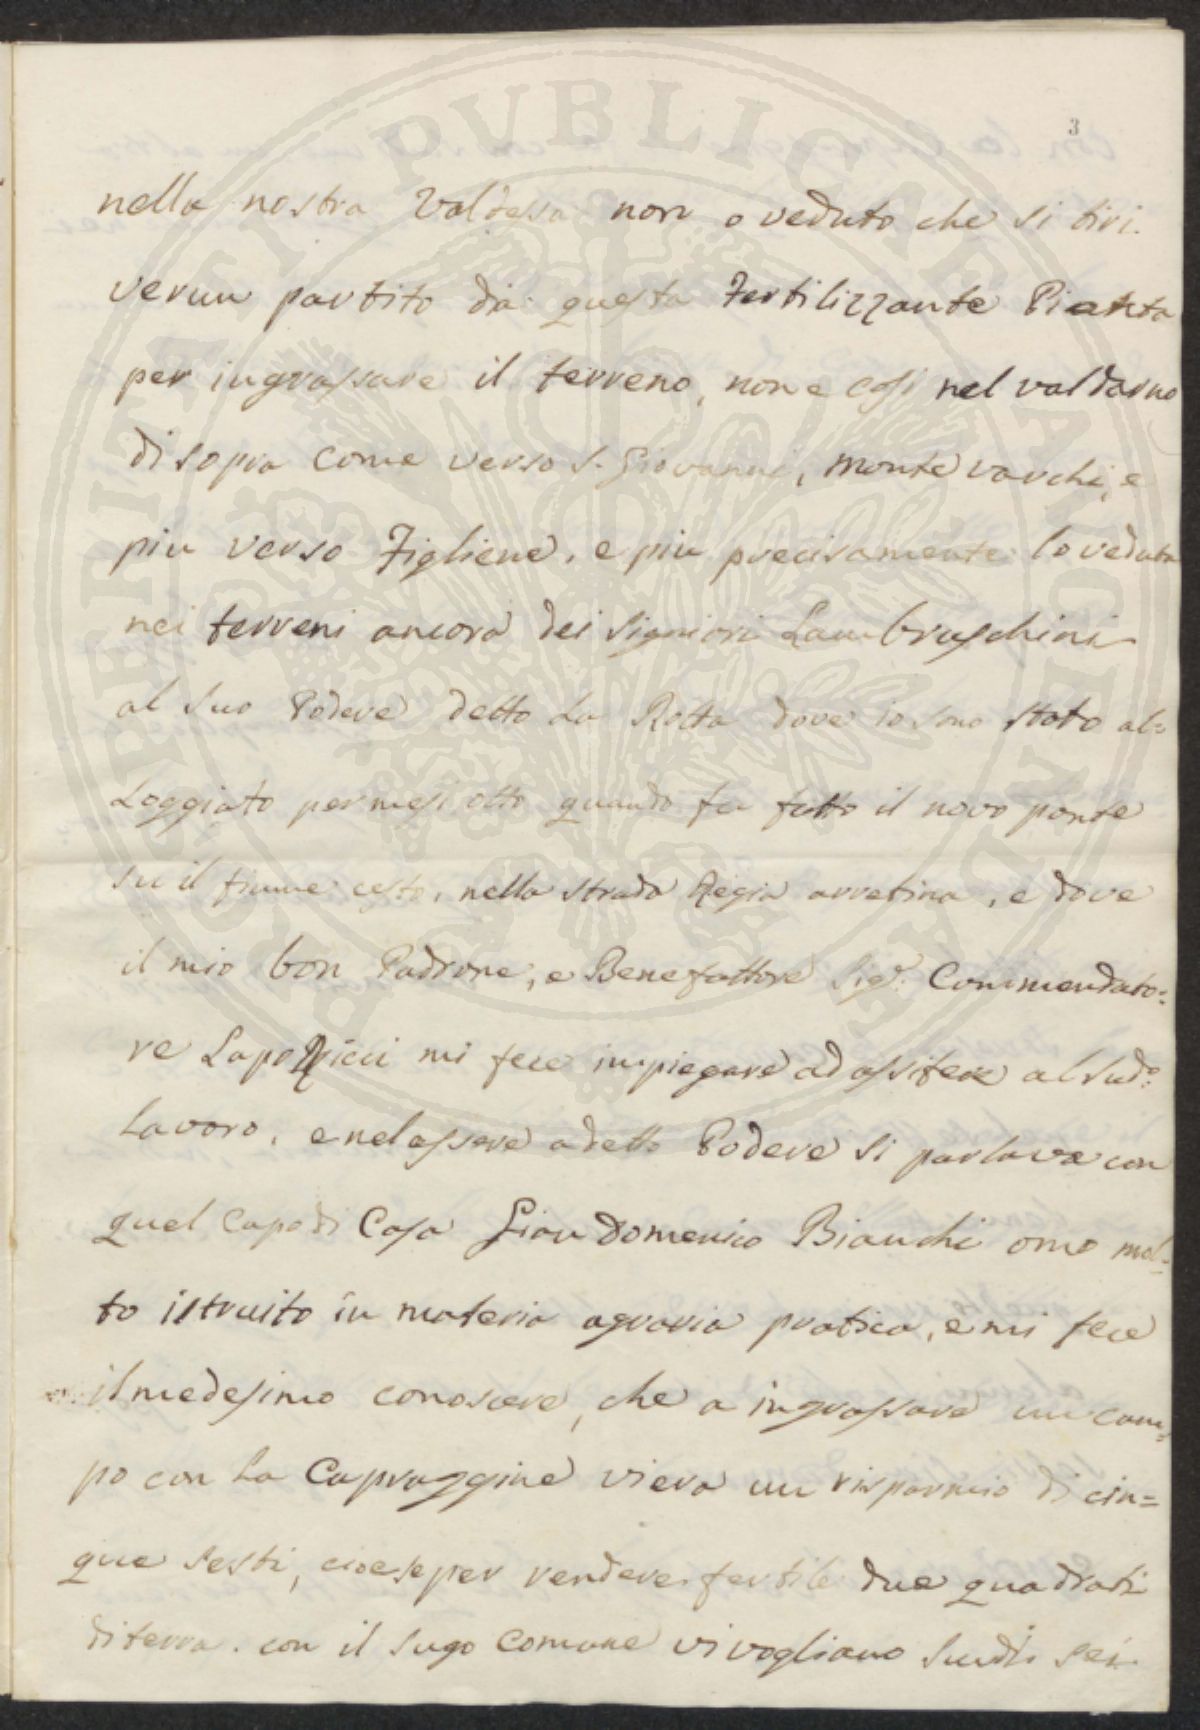 3
nella nostra Valdessa non o veduto che si tiri
verun partito da questa Fertilizzante Pianta
per ingrassare il terreno, non e cosi nel valdarno
di sopra come verso S. Giovanni, Monte varchi, e
piu verso Figliene, e piu precisamente lo veduta
nei terreni ancora dei Signiori Lambruschini
al Suo Podere detto La Rotta dove io sono stato al=
Loggiato per mesi otto quando fu fatto il novo ponte
su il fiume cesto, nella strada Regia arretina, e dove
il mio bon Padrone, e Benefattore Sigr. Commendato=
re Lapo Ricci mi fece impiegare ad assistere al sudo.
Lavoro, e nel assere a detto Podere si parlava con
quel Capo di Casa Gian Domenico Bianchi omo mol=
to istruito in materia agraria pratica, e mi fece
il medesimo conoscere, che a ingrassare un cam=
po con La Capraggine viera un risparmio di cin=
que sesti, cioe se per rendere fertile due quadrati
di terra con il sugo Comune vi vogliano Scudi sei
PUBLICAE
PROSPERITATI